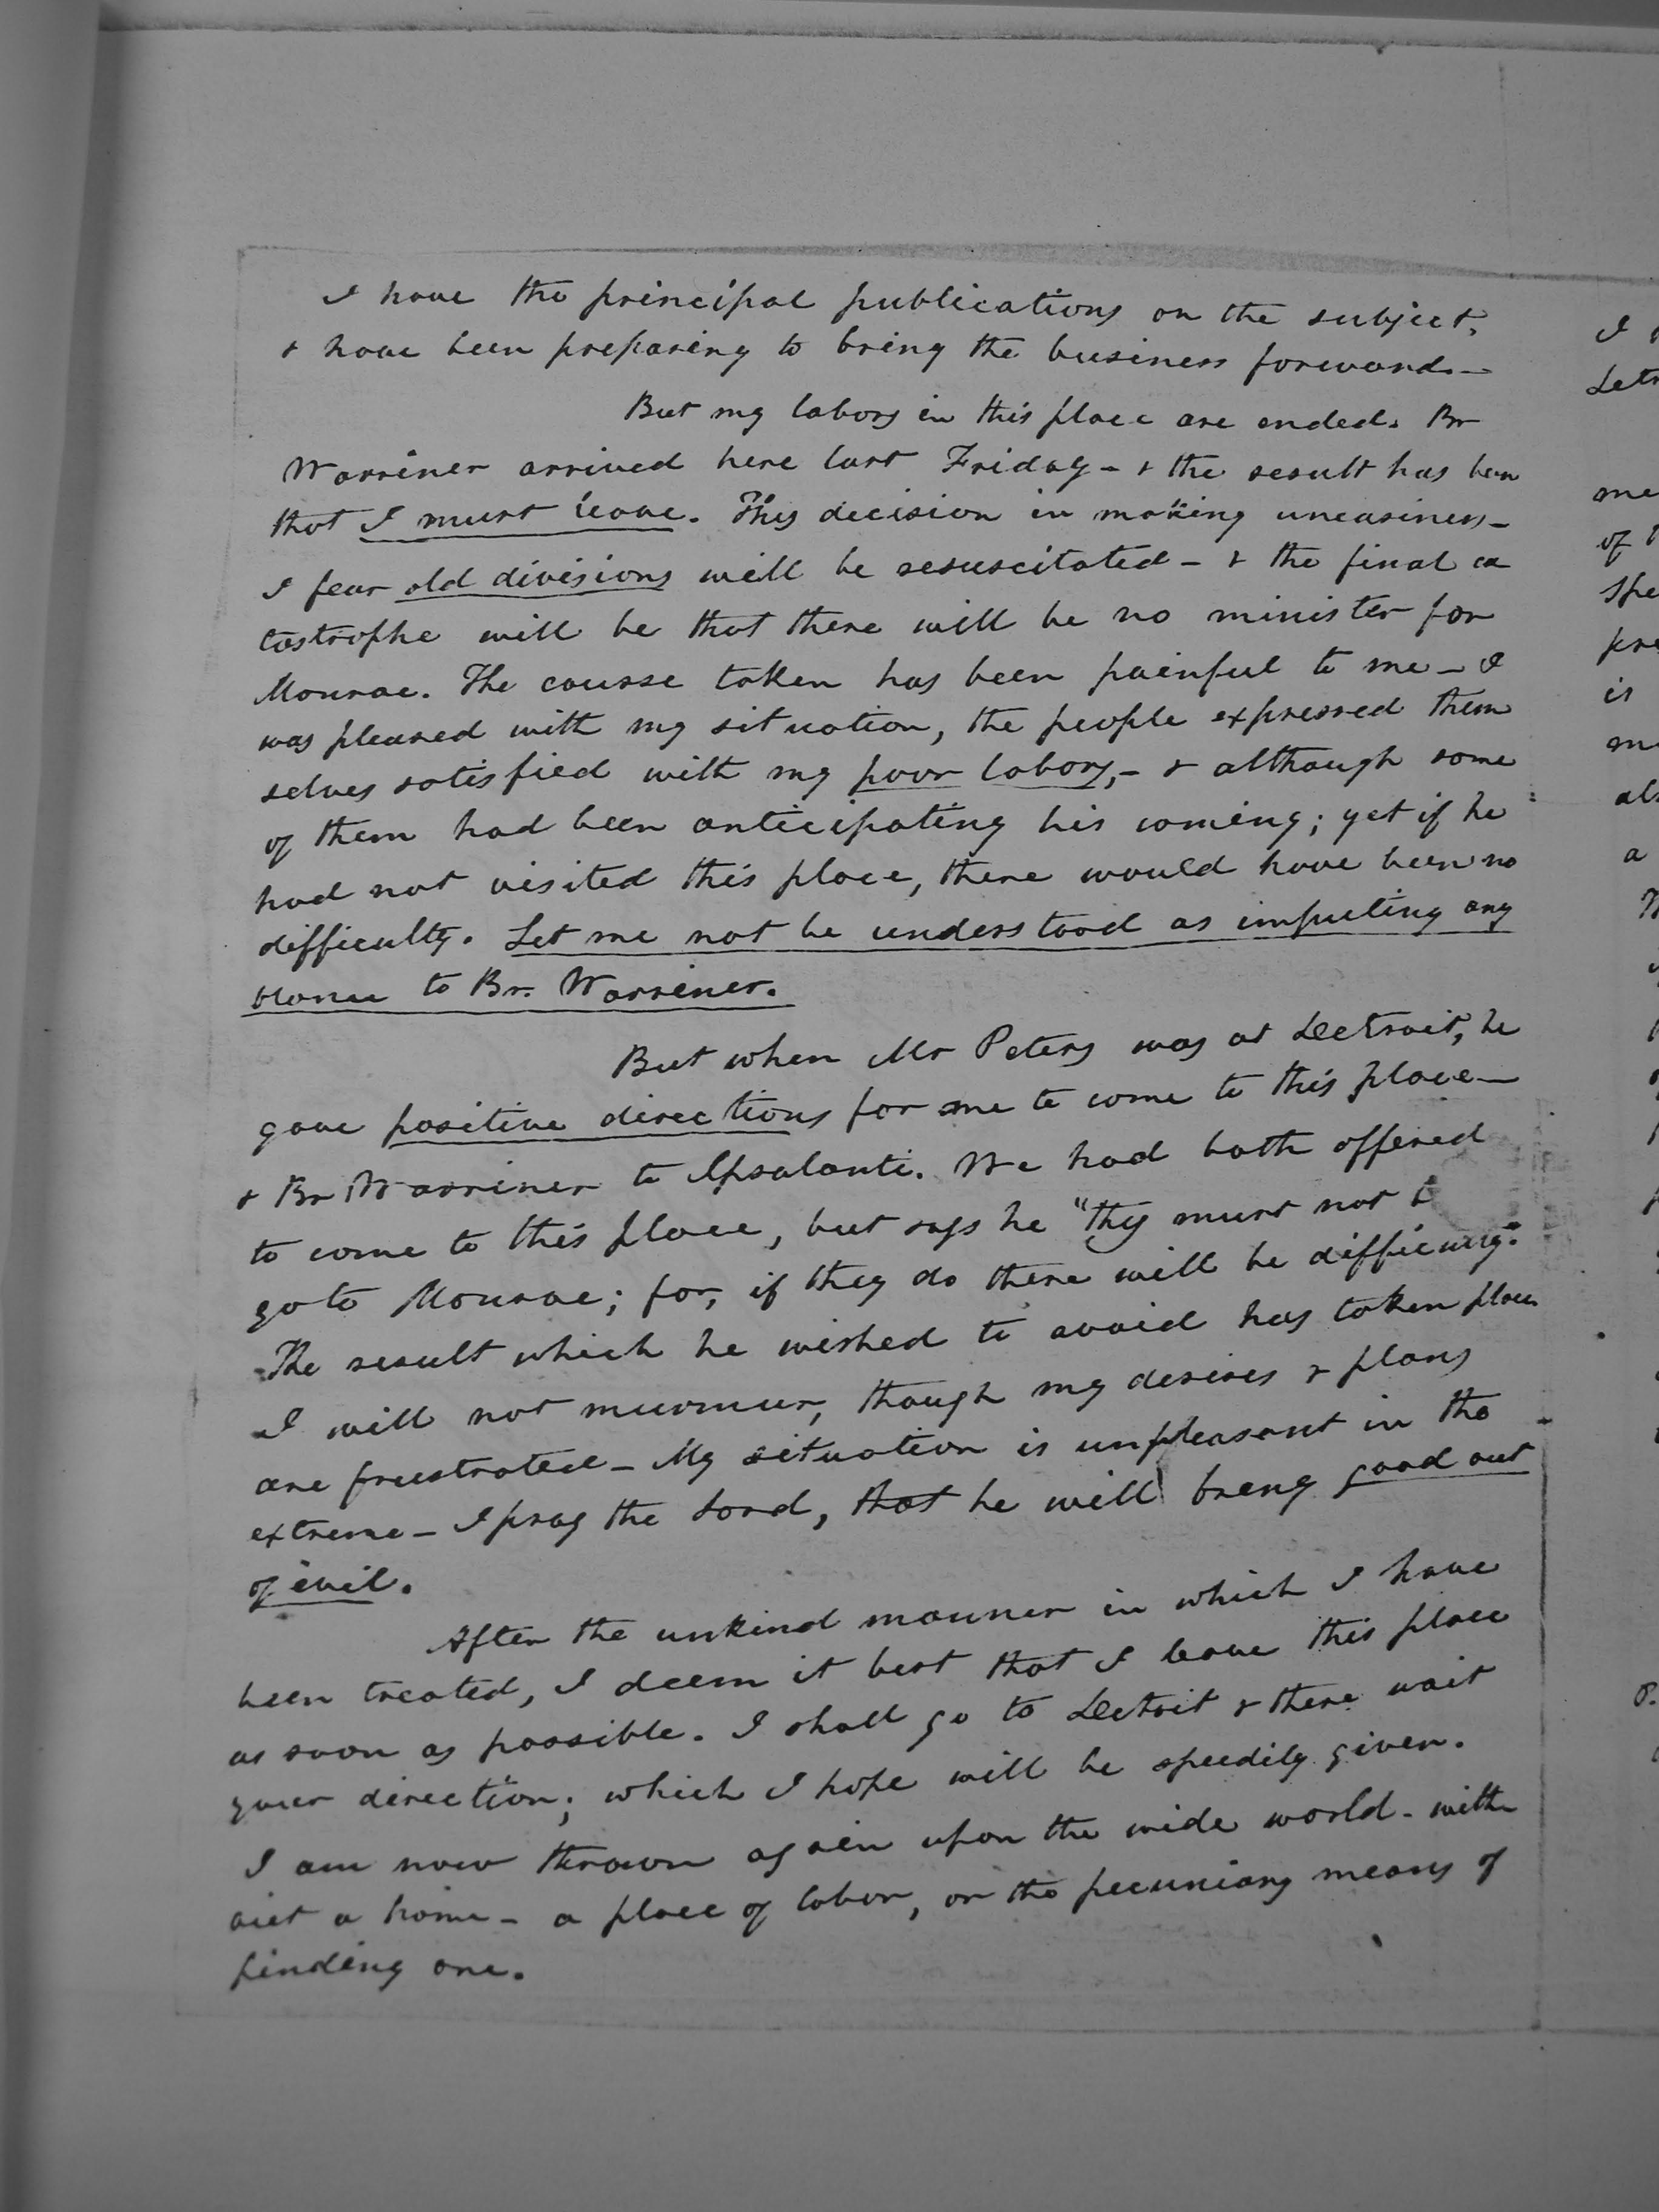 I have the principal publications on the subject,
& have been preparing to bring the business forward.—
But my labors in this place are ended. Br
Warriner arrived here last Friday – & the result has been
that I must leave. This decision in making uneasiness –
I fear old divisions will be resuscitated – & the final ca
tastrophe will be that there will be no minister for
Monroe. The course taken has been painful to me – I
was pleased with my situation, the people expressed them
selves satisfied with my poor labors, – & although some
of them had been anticipating his coming; yet if he
had not visited this place, there would have been no
difficulty. Let me not be understood as imputing any
blame to Br. Warriner.
But when Mr Peters was at Detroit, he
gave positive directions for me to come to this place –
& Br Warriner to Ypsalanti. We had both offered
to come to this place, but says he "they must not
go to Monroe; for, if they do there will be difficulty."
The result which he wished to avoid has taken place
I will not murmur, though my desires & plans
are frustrated – My situation is unpleasant in the
extreme – I pray the Lord, that he will bring good out
of evil.
After the unkind manner in which I have
been treated, I deem it best that I leave this place
as soon as possible. I shall go to Detroit & there wait
your direction; which I hope will be speedily given.
I am now thrown again upon the wide world – with
out a home – a place of labor, or the pecuniary means of
finding one.